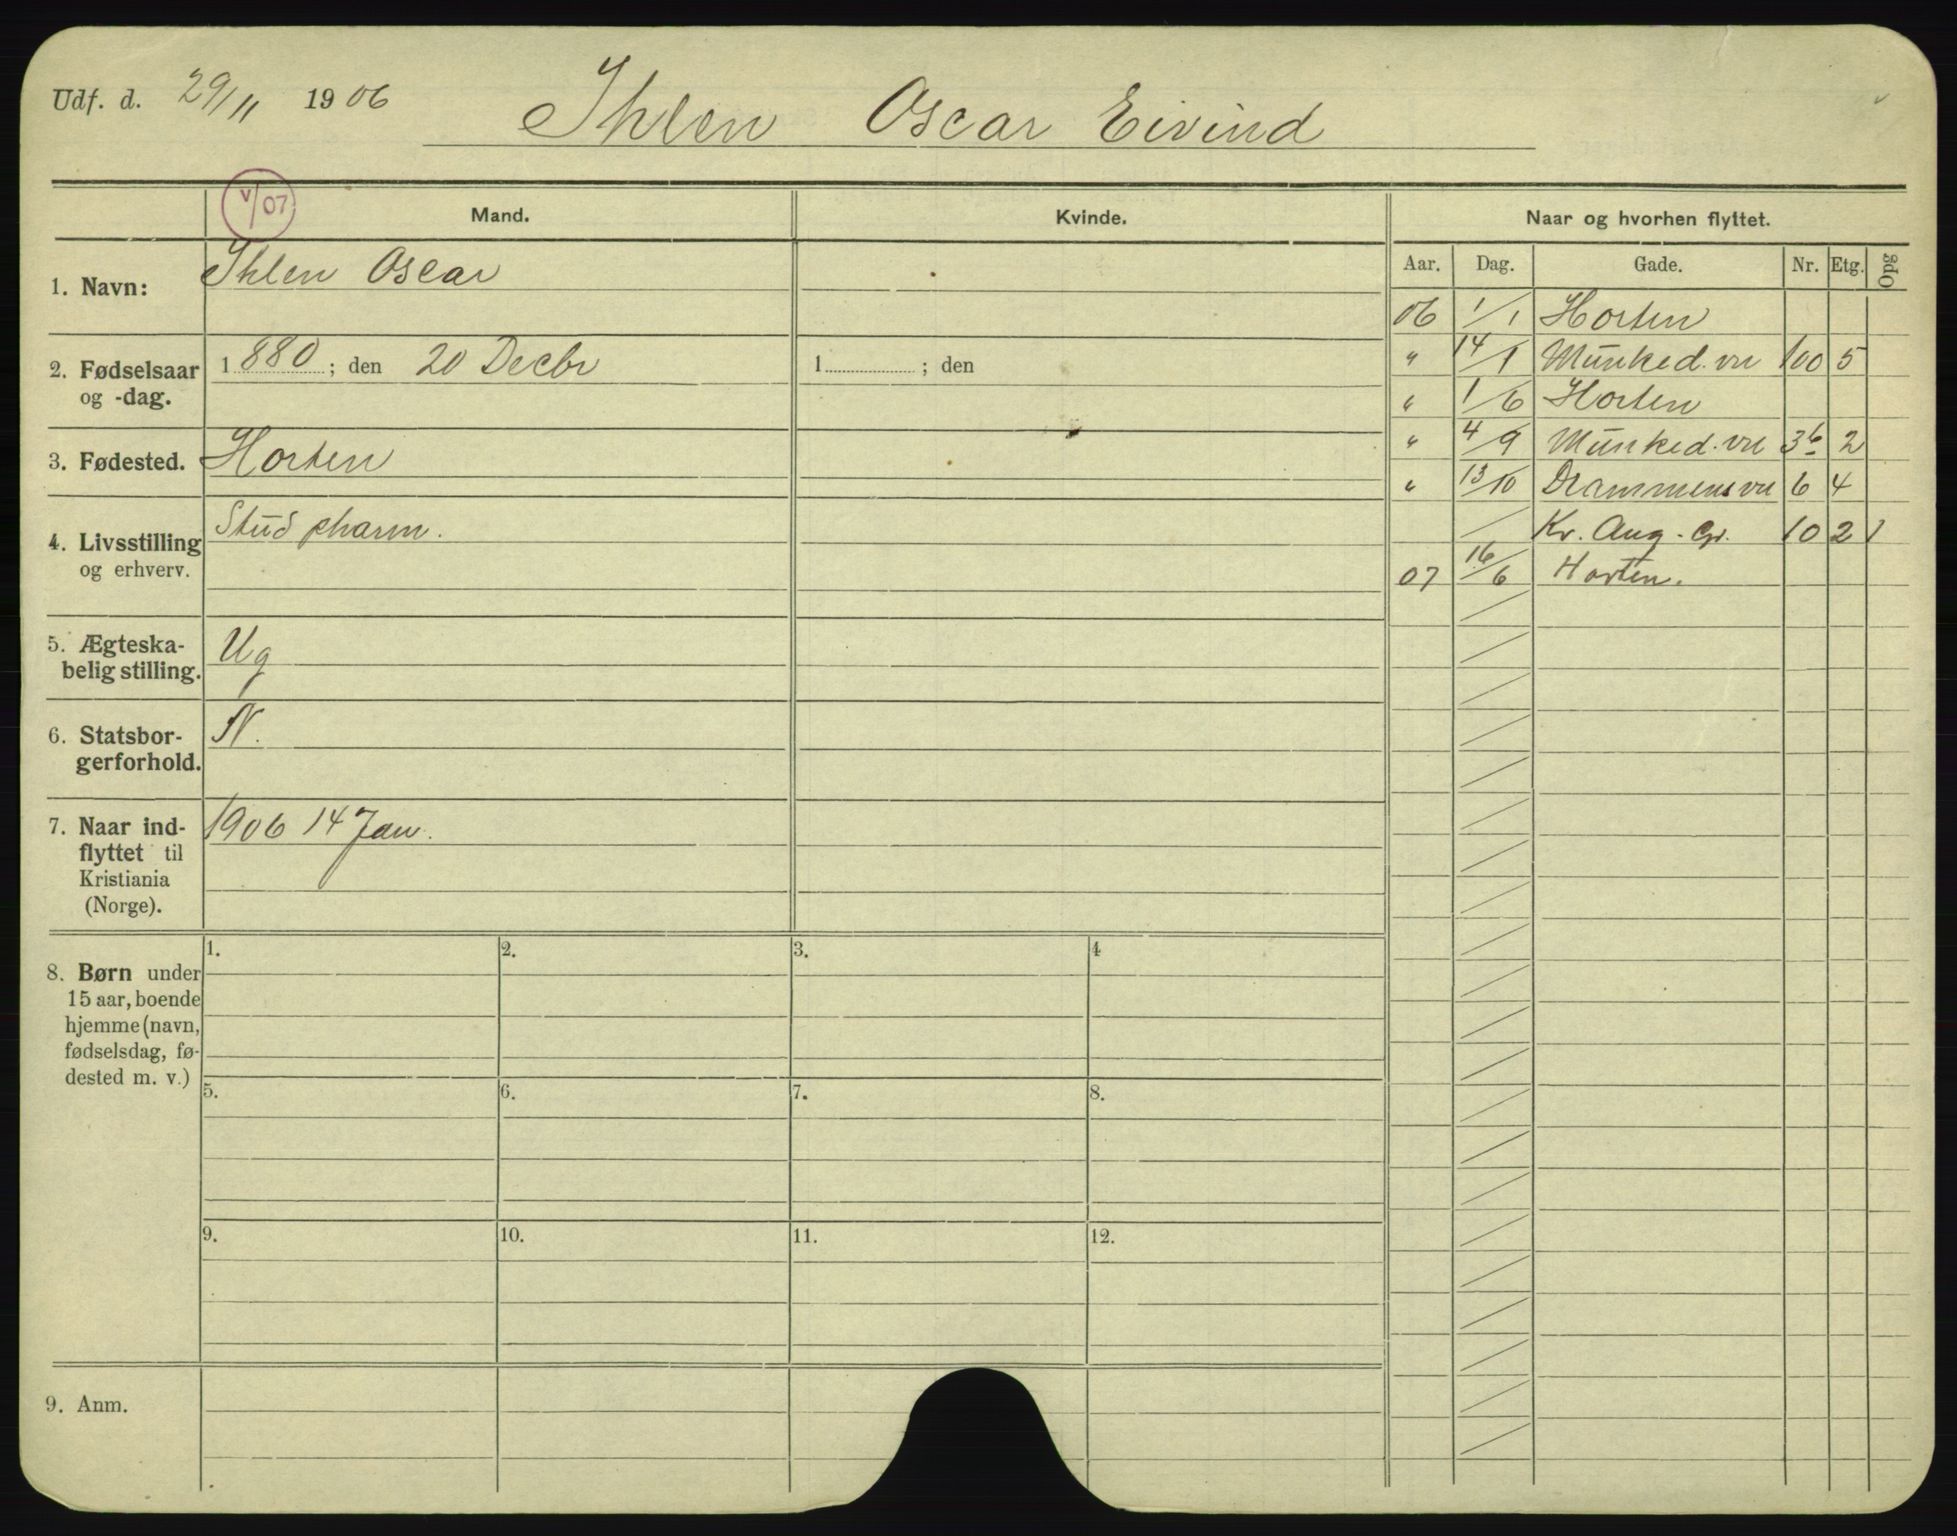 Udf. d. 29/11 1906 Ihlen Oscar Eivind
V/07
Mand. Kvinde. Naar og hvorhen flyttet.
Aar. Dag. Gade. Nr. Etg. Opg
1. Navn: Ihlen Oscar
2. Fødselsaar og -dag. 1880; den 20 Decbr 1 ; den
3. Fødested. Horten
4. Livsstilling og erhverv. Stud pharm.
5. Ægteskabelig stilling. Ug
6. Statsborgerforhold. N.
7. Naar indflyttet til Kristiania (Norge). 1906 14 Jan.
06 1/1 Horten
" 14/1 Munked. vn 100 5
" 1/6 Horten
" 4/9 Munked. vn 36 2
" 13/10 Drammensvn 6 4
/ Kr. Aug. Gr. 10 2 1
07 16/6 Horten.
8. Børn under
15 aar, boende
hjemme (navn,
fødselsdag, fø-
dested m. v.)
1. 2. 3. 4
5. 6. 7. 8.
9. 10. 11. 12.
9. Anm.